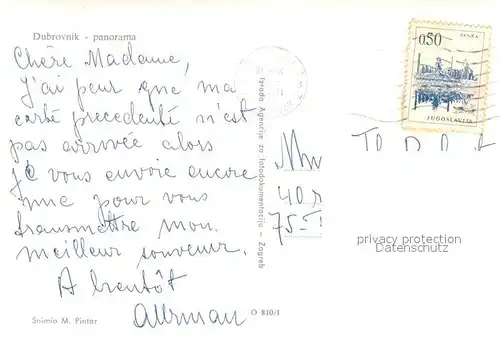 Dubrovnik - panorama
Chère Madame,
J'ai peur que ma
carte precedente n'est
pas arrivée alors
je vous envoie encore
une pour vous
transmettre mon
meilleur souvenir.
A bientôt
Snimio M. Pinter
O 810/1
Izrada Agencije za fotodokumentaciju - Zagreb
0,50
ZENICA
JUGOSLAVIJA
75-
privacy protection
akpool.de